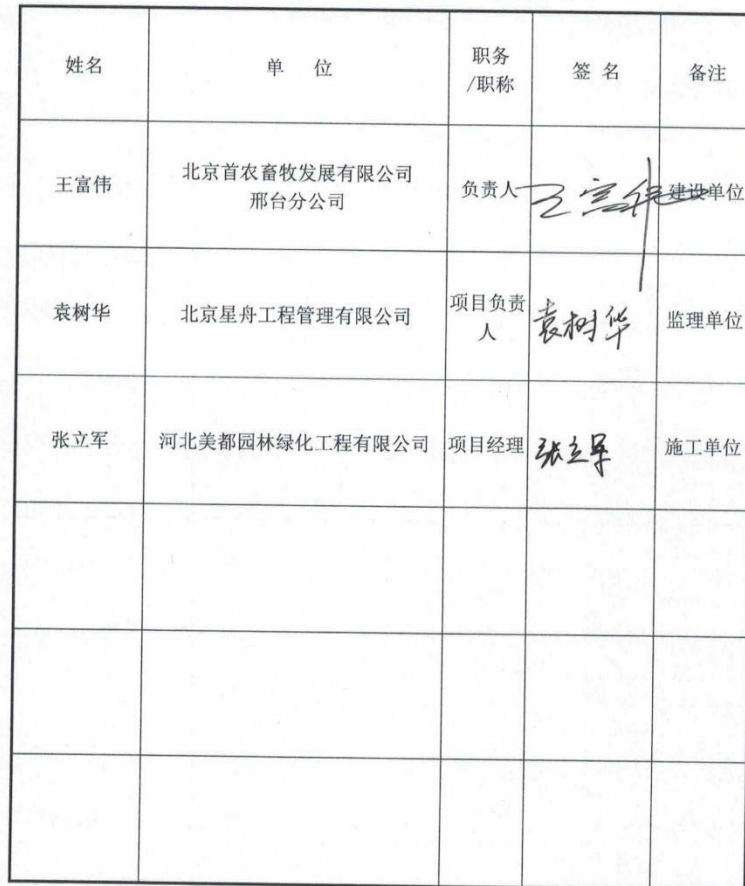 姓名 单 位 职务/职称 签 名 备注
王富伟 北京首农畜牧发展有限公司邢台分公司 负责人 王富伟 建设单位
袁树华 北京星舟工程管理有限公司 项目负责人 袁树华 监理单位
张立军 河北美都园林绿化工程有限公司 项目经理 张立军 施工单位